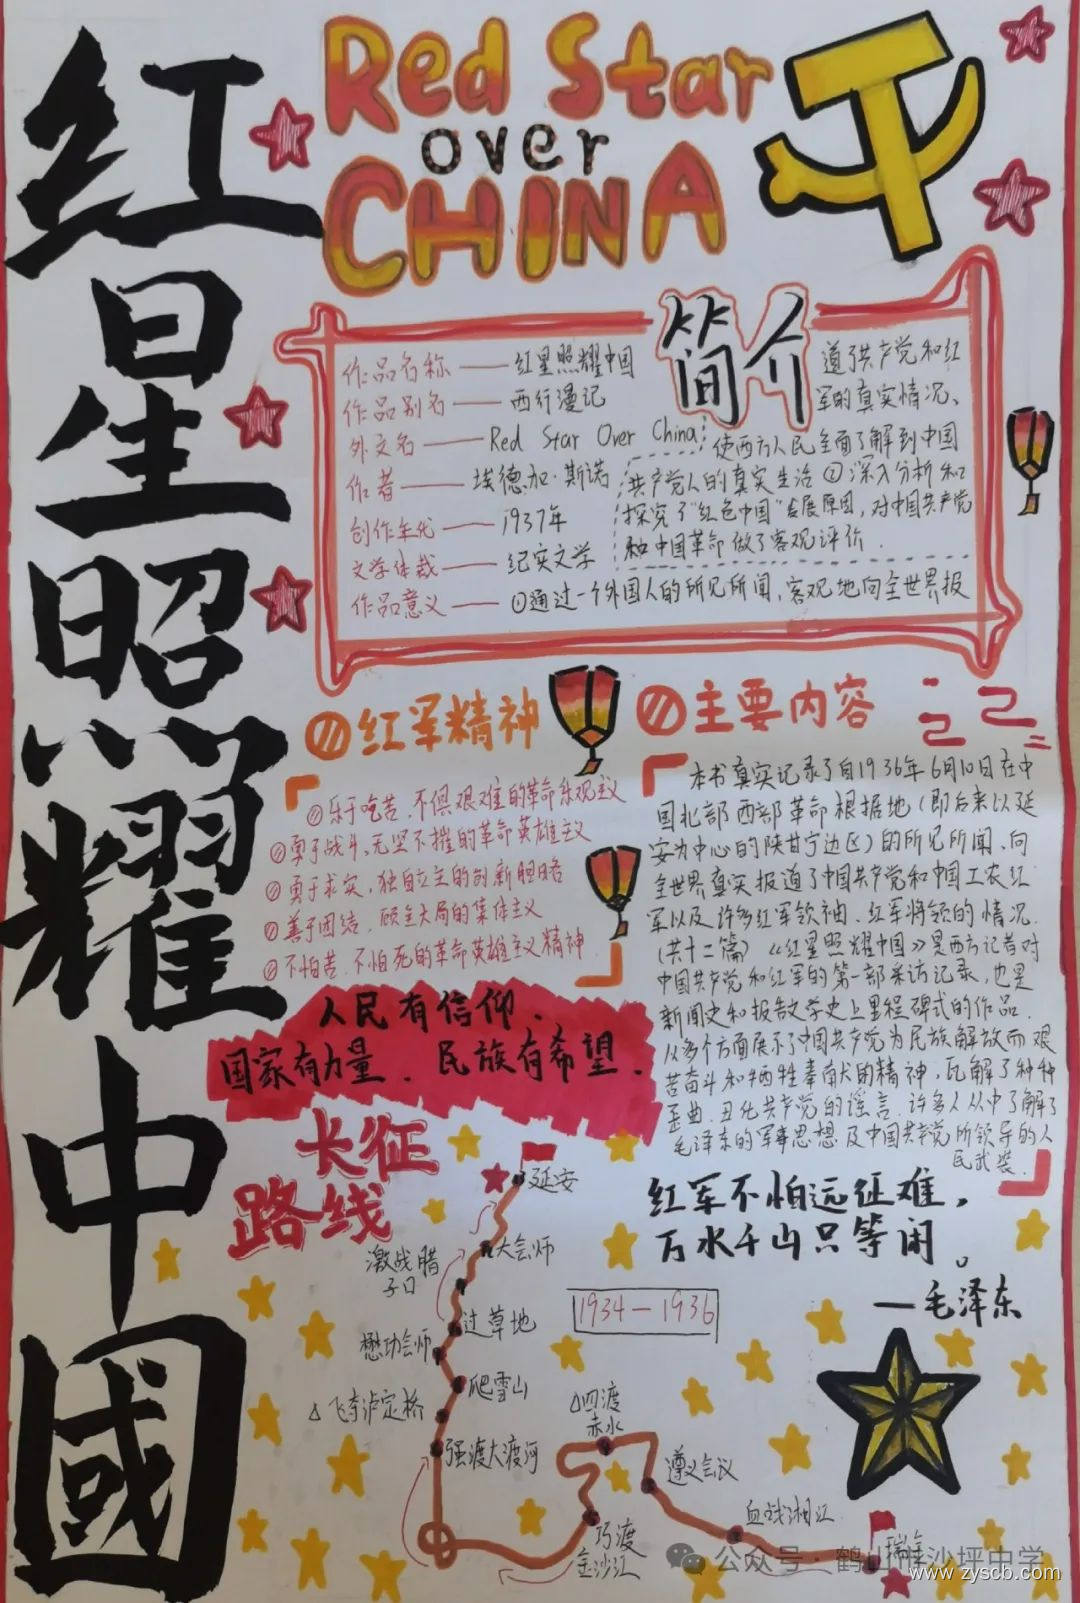 红星照耀中國
Red Star
over
CHINA
简介
作品名称——红星照耀中国
作品别名——西行漫记
外文名——Red Star Over China
作者——埃德加·斯诺
创作年代——1937年
文学体裁——纪实文学
作品意义——①通过一个外国人的所见所闻,客观地向全世界报
道了共产党和红
军的真实情况、
使西方人民全面了解到中国
共产党人的真实生活②深入分析和
探究了"红色中国"发展原因,对中国共产党
和中国革命做了客观评价.
红军精神
乐于吃苦.不惧艰难的革命乐观主义
勇于战斗、无坚不摧的革命英雄主义
勇于求实,独自立主的创新胆略
善于团结,顾全大局的集体主义
不怕苦.不怕死的革命英雄主义精神
主要内容
本书真实记录了自1936年6月10日在中
国北部西部革命根据地(即后来以延
安为中心的陕甘宁边区)的所见所闻、向
全世界真实报道了中国共产党和中国工农红
军以及许多红军领袖、红军将领的情况.
(共十二篇)《红星照耀中国》是西方记者对
中国共产党和红军的第一部采访记录,也是
新闻史和报告文学史上里程碑式的作品.
从多个方面展示了中国共产党为民族解放而艰
苦奋斗和牺牲奉献的精神,瓦解了种种
歪曲、丑化共产党的谣言.许多人从中了解了
毛泽东的军事思想及中国共产党所领导的人
民武装.
人民有信仰、
国家有力量.民族有希望.
长征
路线
延安
大会师
激战腊
子口
过草地
懋功会师
爬雪山
△飞夺泸定桥
强渡大渡河
1934—1936
△四渡
赤水
遵义会议
巧渡
金沙江
血战湘江
瑞金
红军不怕远征难,
万水千山只等闲。
—毛泽东
公众号·鹤山市沙坪中学
www.zyscb.com